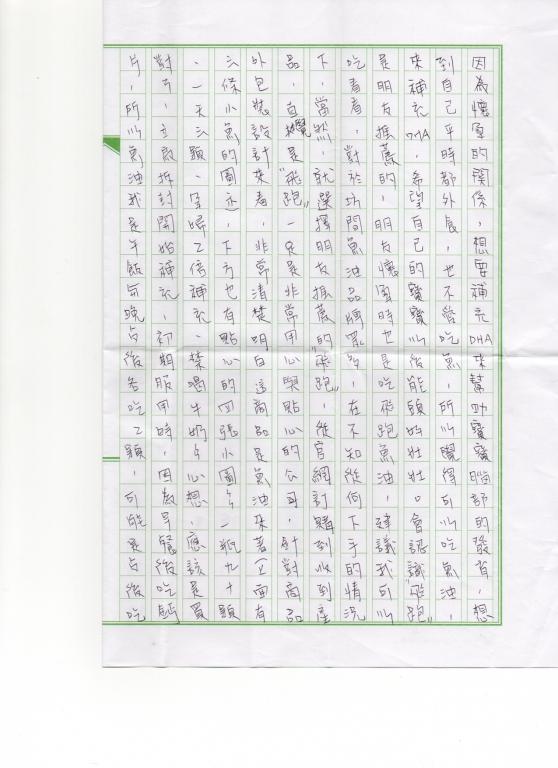 因為懷孕的關係，想要補充DHA來幫助寶寶腦部的發育，想
到自己平時都外食，也不常吃魚，所以覺得可以吃魚油，
來補充DHA，希望自己的寶寶以後能頭好壯壯，會認識"飛跑"，
是朋友推薦的，朋友懷孕時也是吃飛跑魚油，建議我可以
吃看看，對於坊間魚油品牌眾多，在不知從何下手的情況
下，當然，就選擇朋友推薦的"飛跑"，從官網訂購到收到產
品，直覺是"飛跑"一定是非常用心與貼心的公司，針對商品
外包裝設計來看，非常清楚明白這商品是魚油來著，正面有
六條小魚的圖示，下方也有點心的四張小圖，一瓶九十顆
、一天三顆，孕婦乙倍補充、禁喝牛奶，心想，應該是買
對了，立啟拆封開始補充，初期服用時，因為早餐後吃鈣
片，所以魚油我是午飯前晚上後各吃乙顆，可能是後吃